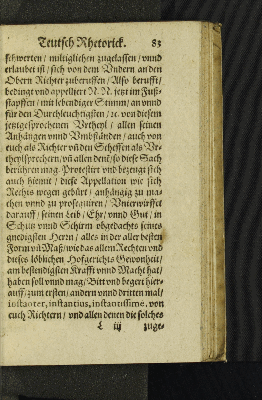 Teutsch Rhetorick. 83
schwerten / miltiglichen zugelassen / vnnd
erlaubet ist / sich von dem Vndern an den
Obern Richter zuberuffen / Also berufft /
bedingt vnd appelliert N. N. jetzt im Fuß-
stapffen / mit lebendiger Stimm / an vnnd
für den Durchleuchtigsten / ꝛc. von diesem
jetztgesprochenen Vrtheyl / allen seinen
Anhängen vnnd Vmbständen / auch von
euch als Richter vñ den Scheffen als Vr-
theylsprechern / vñ allen denē / so diese Sach
berühren mag. Protestirt vnd bezeugt sich
auch hiemit / diese Appellation wie sich
Rechts wegen gebürt / anhängig zu ma-
chen vnnd zu prosequiren / Vnterwürffet
darauff / seinen Leib / Ehr / vnnd Gut / in
Schutz vnnd Schirm obgedachts seines
gnedigsten Herrn / alles in der aller besten
Form vñ Maß / wie das allem Rechten vnd
dieses löblichen Hofgerichts Gewonheit /
am bestendigsten Krafft vnnd Macht hat /
haben soll vnnd mag / Bitt vnd begert hier-
auff / zum ersten / andern vnnd dritten mal /
instanter, instantius, instantissime, von
euch Richtern / vnd allen denen die solches
L iij zuge-